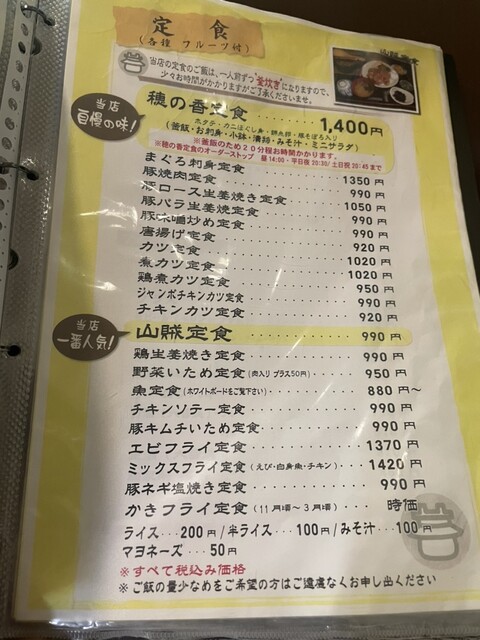 定食
(各種 フルーツ付)
山賊定食
当店の定食のご飯は、一人前ずつ"釜炊き"になりますので、
少々お時間がかかりますがご了承くださいませ。
当店
自慢の味!
穂の香定食 1,400円
(釜飯・お刺身・小鉢・漬物・みそ汁・ミニサラダ)
※釜飯のため20分程お時間かかります。
※穂の香定食のオーダーストップ 昼14:00・平日夜20:30/土日祝20:45まで
まぐろ刺身定食 1350円
豚焼肉定食 990円
豚ロース生姜焼き定食 1050円
豚バラ生姜焼定食 990円
豚味噌炒め定食 990円
唐揚げ定食 920円
カツ定食 1020円
煮カツ定食 1020円
鶏煮カツ定食 950円
ジャンボチキンカツ定食 990円
チキンカツ定食 920円
当店
一番人気!
山賊定食 990円
鶏生姜焼き定食 990円
野菜いため定食(肉入り プラス50円) 950円
魚定食(ホワイトボードをご覧下さい) 880円~
チキンソテー定食 990円
豚キムチいため定食 990円
エビフライ定食 1370円
ミックスフライ定食(えび・白身魚・チキン) 1420円
豚ネギ塩焼き定食 990円
かきフライ定食(11月頃~3月頃) 時価
ライス…200円/半ライス…100円/みそ汁…100円
マヨネーズ…50円
※すべて税込み価格
※ご飯の量少なめをご希望の方はご遠慮なくお申し出ください